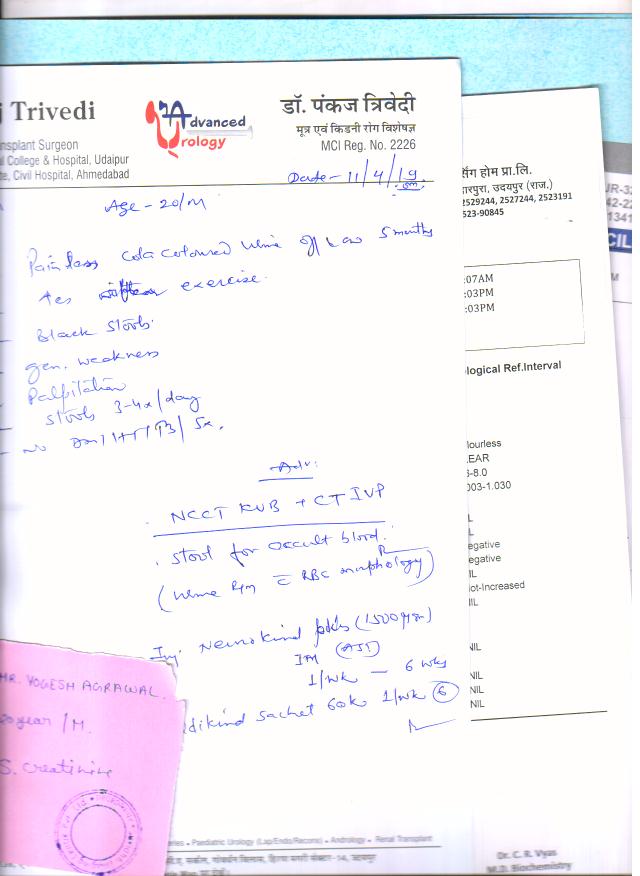 Trivedi
nsplant Surgeon
l College & Hospital, Udaipur
te, Civil Hospital, Ahmedabad
Advanced
Urology
डॉ. पंकज त्रिवेदी
मूत्र एवं किडनी रोग विशेषज्ञ
MCI Reg. No. 2226
Date - 11/4/19
Age - 20/M
Painless Cola Coloured Urine off & on 5 months
exercise.
Black Stools.
gen. weakness
Palpitation
Stools 3-4x/day
Adv:
NCCT KUB + CT IVP
. Stool for occult blood.
(Urine R/m c RBC morphology)
Inj. Neurokind plus (1500 mgm)
IM
1/wk — 6 wks
dikind sachet 60k 1/wk 6
MR. YOGESH AGRAWAL.
20 year / M.
S. Creatinine
सिंग होम प्रा.लि.
उदयपुर (राज.)
2529244, 2527244, 2523191
523-90845
:07AM
:03PM
:03PM
logical Ref.Interval
lourless
EAR
-8.0
003-1.030
L
L
egative
egative
IL
ot-Increased
IL
NIL
NIL
NIL
NIL
UR-32
42-22
1341
CIL
M
eries • Paediatric Urology (Lap/Endo/Recons) • Andrology • Renal Transplant
Dr. C. R. Vyas
M.D. Biochemistry